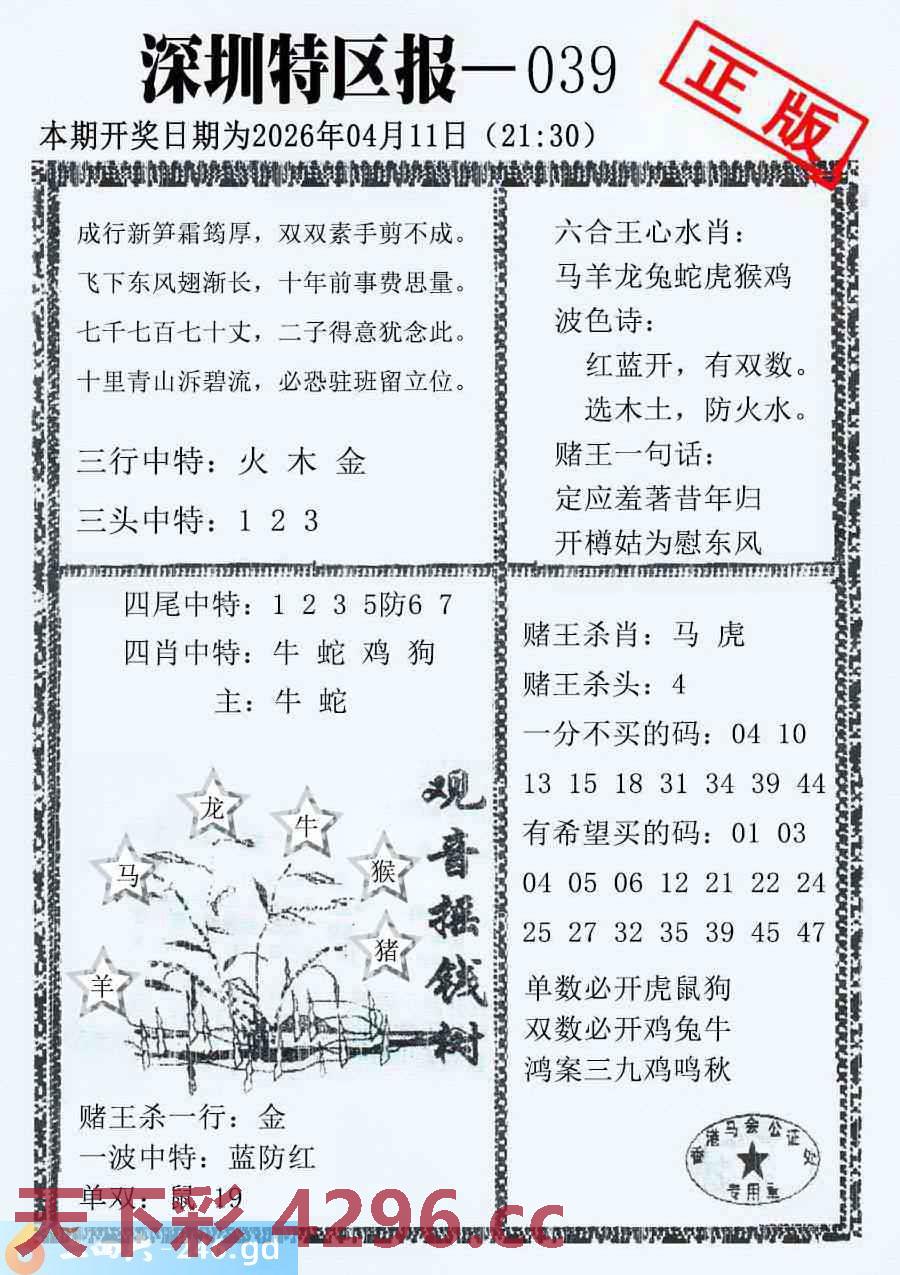 深圳特区报—039
正版
本期开奖日期为2026年04月11日（21:30）
成行新笋霜筠厚，双双素手剪不成。
飞下东风翅渐长，十年前事费思量。
七千七百七十丈，二子得意犹念此。
十里青山泝碧流，必恐驻班留立位。
三行中特：火 木 金
三头中特：1 2 3
六合王心水肖：
马羊龙兔蛇虎猴鸡
波色诗：
红蓝开，有双数。
选木土，防火水。
赌王一句话：
定应羞著昔年归
开樽姑为慰东风
四尾中特：1 2 3 5防6 7
四肖中特：牛 蛇 鸡 狗
主：牛 蛇
观音摇钱树
龙
牛
马
猴
猪
羊
赌王杀一行：金
一波中特：蓝防红
单双：鼠 19
赌王杀肖：马 虎
赌王杀头：4
一分不买的码：04 10
13 15 18 31 34 39 44
有希望买的码：01 03
04 05 06 12 21 22 24
25 27 32 35 39 45 47
单数必开虎鼠狗
双数必开鸡兔牛
鸿案三九鸡鸣秋
香港马会公证处
专用章
天下彩 4296.cc
-246.gd